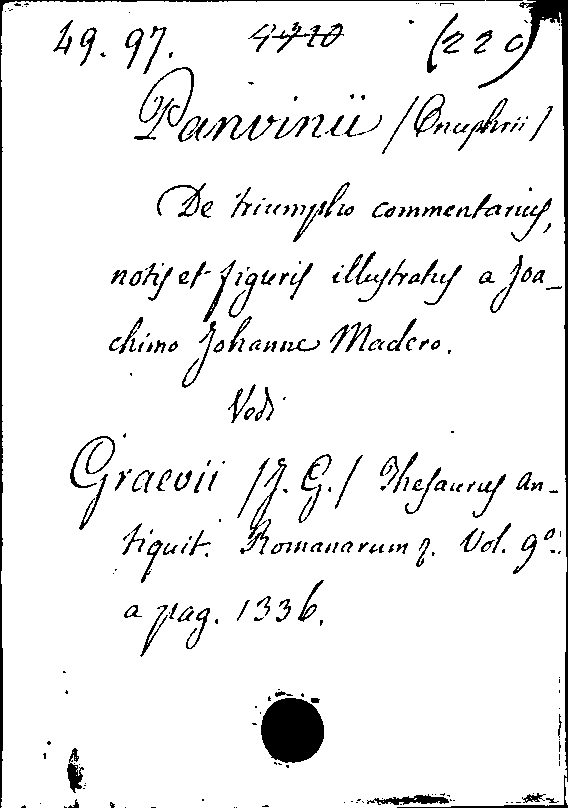 49. 97. 4310 (22c)
Panvinii (Onuphrii)
De triumpho commentarius,
notis et figuris illustratus a Joa-
chimo Johanne Madero.
Vedi
Graevii (J. G.) Thesaurus an-
tiquit. Romanarum &. Vol. 9º.
a pag. 1336.